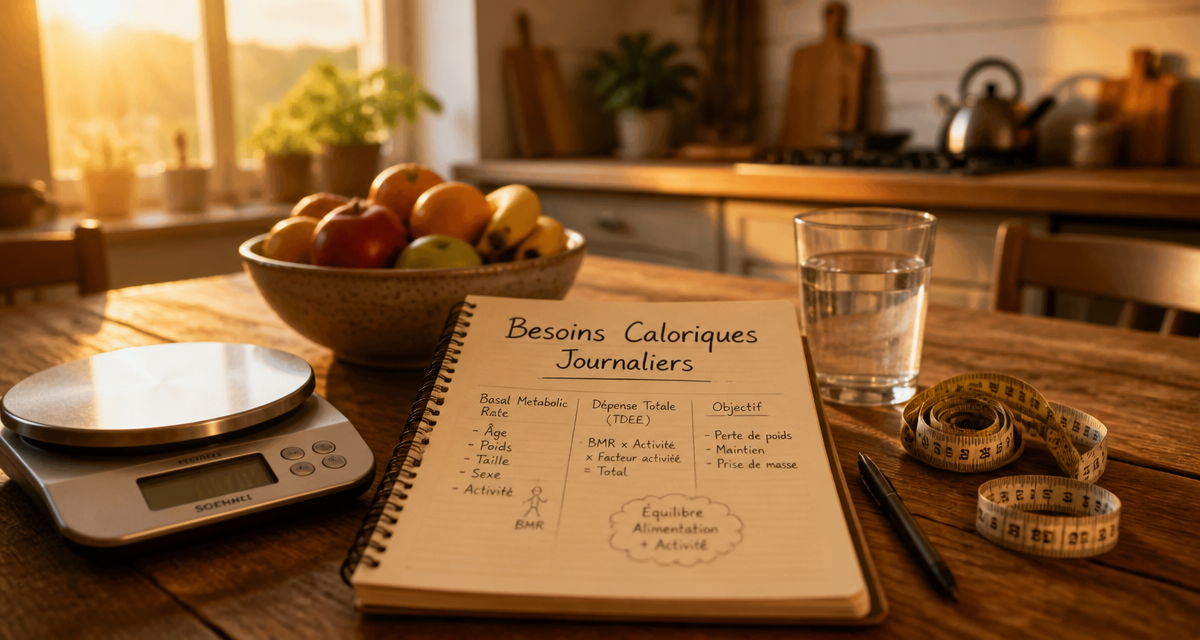 Besoins Caloriques
Journaliers
Basal Metabolic
Rate
- Âge
- Poids
- Taille
- Sexe
- Activité
BMR
Dépense Totale
(TDEE)
BMR x Activité
x Facteur activité
= Total
Objectif
- Perte de poids
- Maintien
- Prise de masse
Équilibre
Alimentation
+ Activité